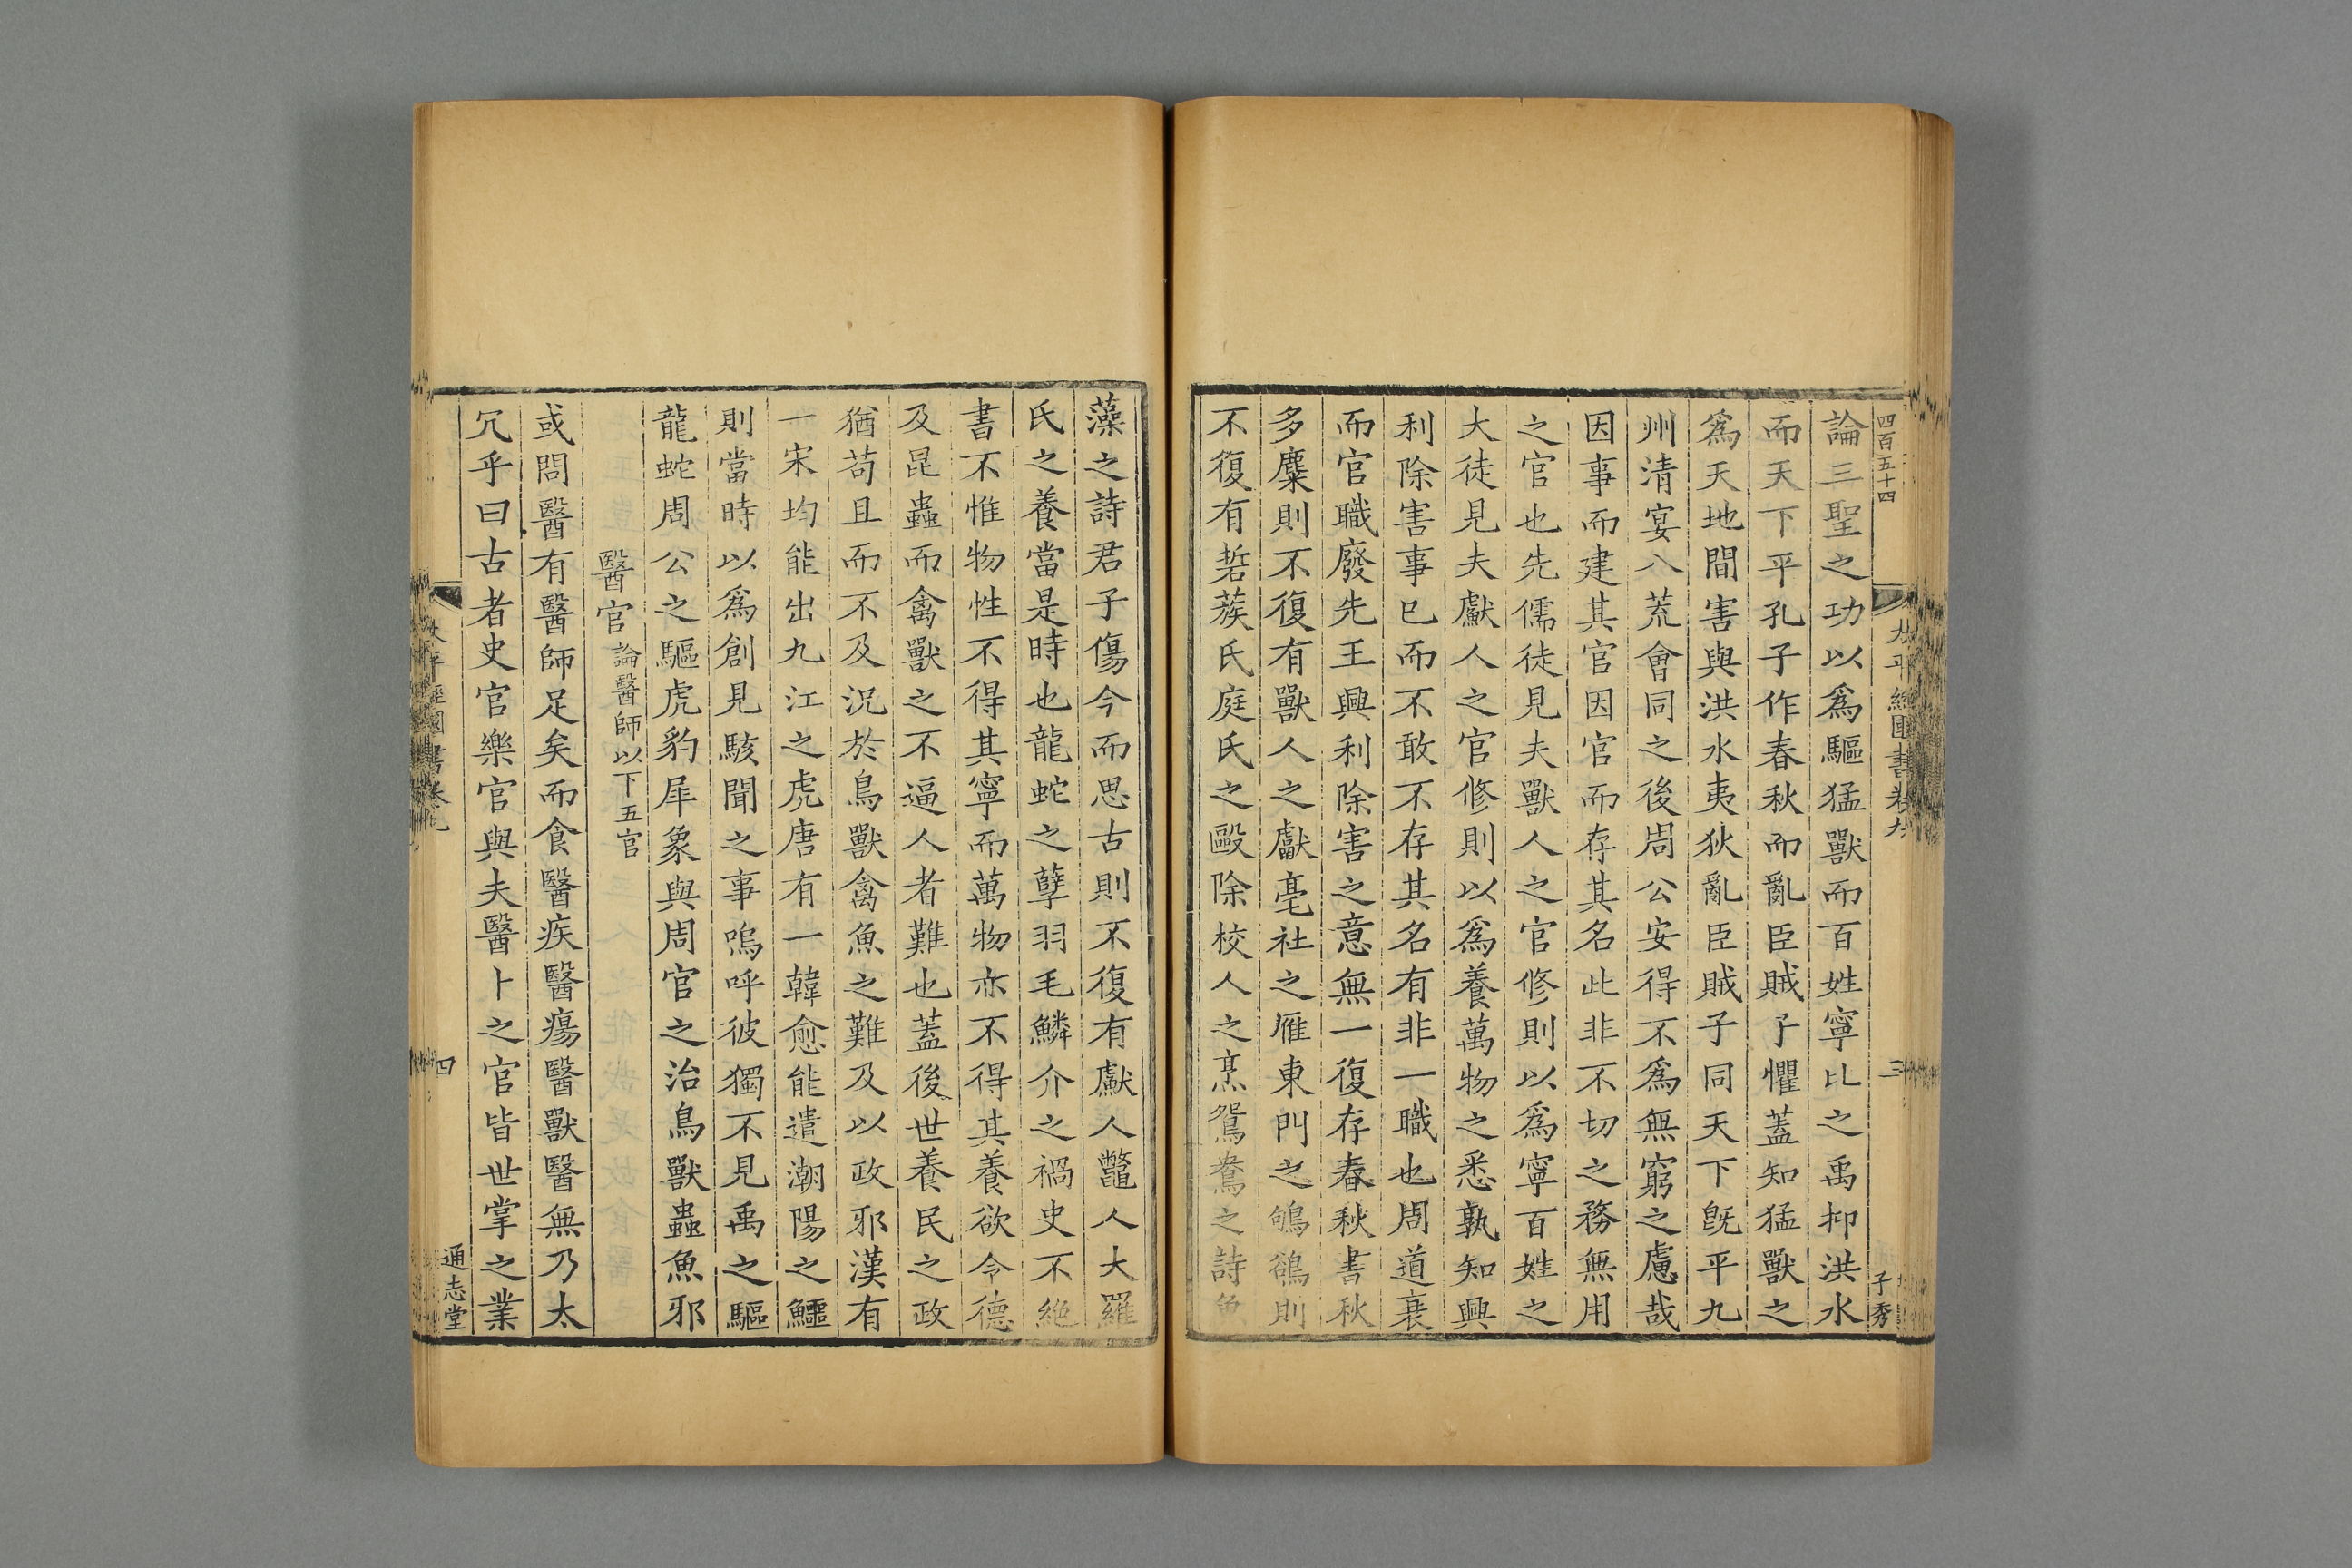 四百五十四
太平經國書卷九
三
子秀
論三聖之功以爲驅猛獸而百姓寧比之禹抑洪水
而天下平孔子作春秋而亂臣賊子懼蓋知猛獸之
爲天地間害與洪水夷狄亂臣賊子同天下旣平九
州清宴八荒會同之後周公安得不爲無窮之慮哉
因事而建其官因官而存其名此非不切之務無用
之官也先儒徒見夫獸人之官修則以爲寧百姓之
大徒見夫䱷人之官修則以爲養萬物之悉孰知興
利除害事已而不敢不存其名有非一職也周道衰
而官職廢先王興利除害之意無一復存春秋書秋
多麋則不復有獸人之獻亳社之雁東門之鴝鵒則
不復有硩蔟氏庭氏之毆除校人之烹鴛鴦之詩魚
藻之詩君子傷今而思古則不復有䱷人鼈人大羅
氏之養當是時也龍蛇之孽羽毛鱗介之禍史不絶
書不惟物性不得其寧而萬物亦不得其養欲令德
及昆蟲而禽獸之不逼人者難也蓋後世養民之政
猶苟且而不及況於鳥獸禽魚之難及以政邪漢有
一宋均能出九江之虎唐有一韓愈能遣潮陽之鱷
則當時以爲創見駭聞之事嗚呼彼獨不見禹之驅
龍蛇周公之驅虎豹犀象與周官之治鳥獸蟲魚邪
醫官論醫師以下五官
或問醫有醫師足矣而食醫疾醫瘍醫獸醫無乃太
冗乎曰古者史官樂官與夫醫卜之官皆世掌之業
太平經國書卷九
四
通志堂